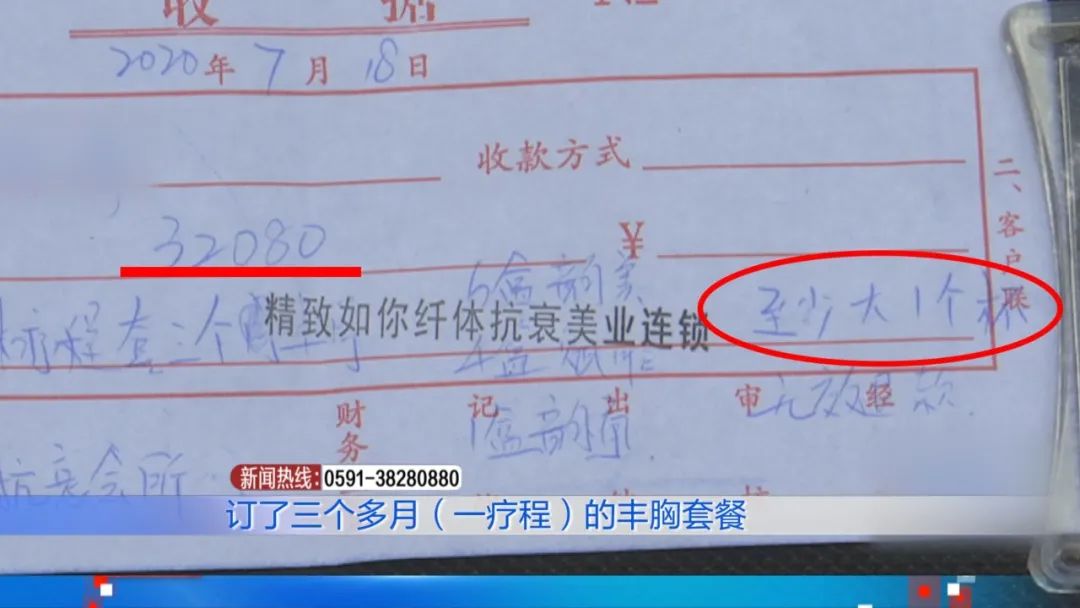 收据 №
2020年7月18日
收款方式
二、客户联
32080 ¥
6盒韵美
至少大1个杯
疗程 三个
精致如你纤体抗衰美业连锁
1盒韵
无效退款
财务 记 出 审 经
抗衰会所
新闻热线:0591-38280880
订了三个多月（一疗程）的丰胸套餐